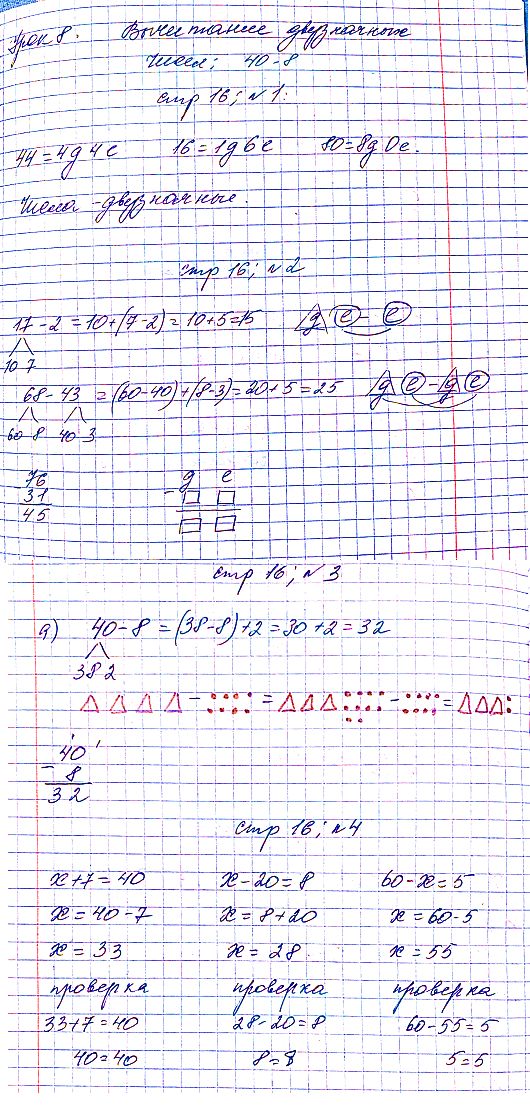 Урок 8. Вычитание двузначных
чисел; 40-8
стр 16; №1.
44=4д 4е 16=1д 6е 80=8д 0е.
Числа - двузначные.
стр 16; №2
17-2=10+(7-2)=10+5=15 д е - е
10 7
68-43=(60-40)+(8-3)=20+5=25 д е - д е
60 8 40 3
76 д е
31 -
45
стр 16; №3
а) 40-8=(38-8)+2=30+2=32
38 2
- = - =
40
- 8
32
стр 16; №4
х+7=40 х-20=8 60-х=5
х=40-7 х=8+20 х=60-5
х=33 х=28 х=55
проверка проверка проверка
33+7=40 28-20=8 60-55=5
40=40 8=8 5=5